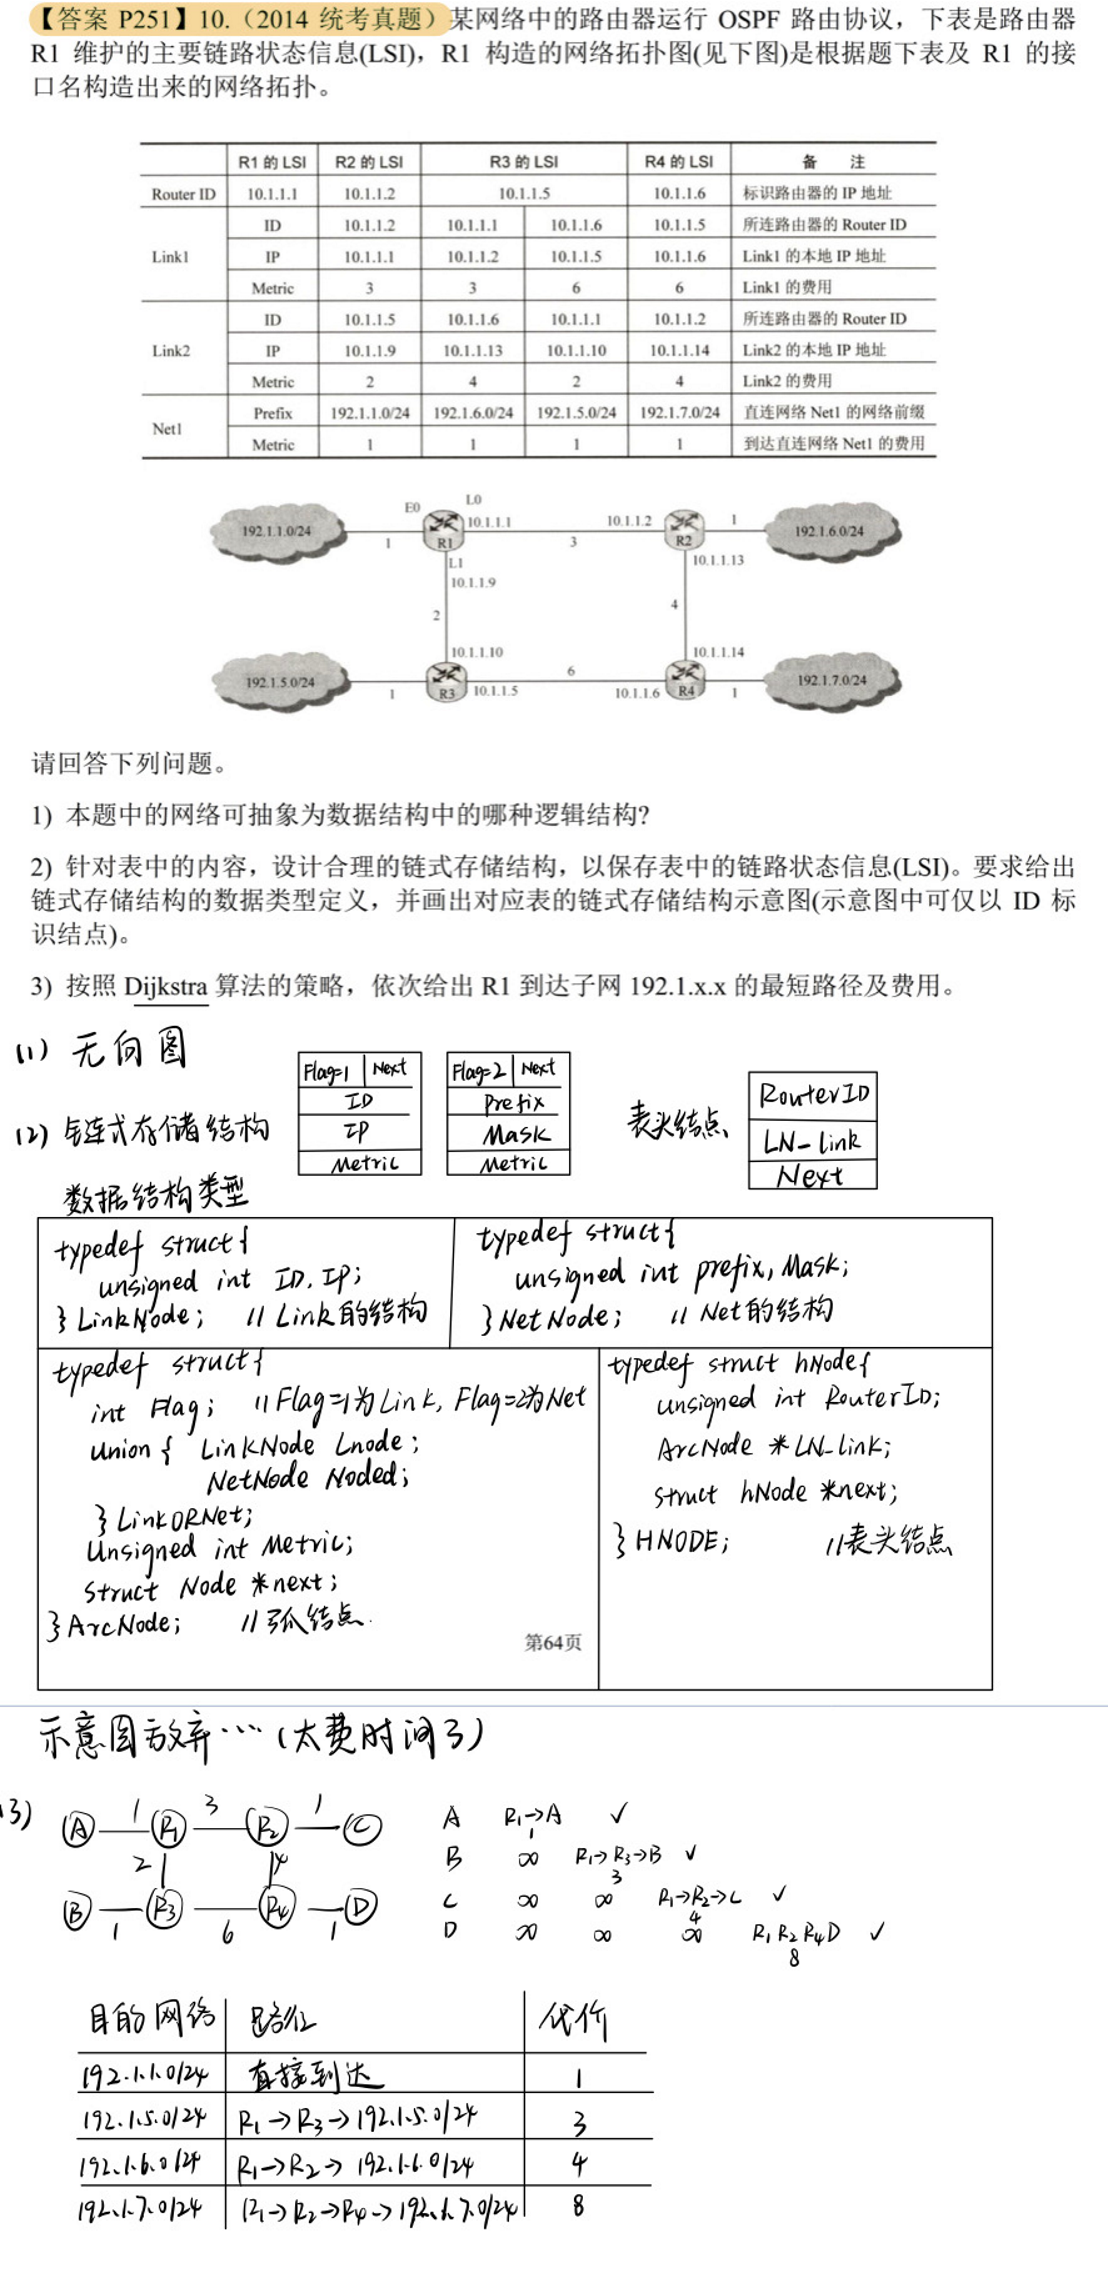 【答案 P251】10.（2014 统考真题）某网络中的路由器运行 OSPF 路由协议，下表是路由器
R1 维护的主要链路状态信息(LSI)，R1 构造的网络拓扑图(见下图)是根据题下表及 R1 的接
口名构造出来的网络拓扑。
R1 的 LSI R2 的 LSI R3 的 LSI R4 的 LSI 备 注
Router ID 10.1.1.1 10.1.1.2 10.1.1.5 10.1.1.6 标识路由器的 IP 地址
ID 10.1.1.2 10.1.1.1 10.1.1.6 10.1.1.5 所连路由器的 Router ID
Link1 IP 10.1.1.1 10.1.1.2 10.1.1.5 10.1.1.6 Link1 的本地 IP 地址
Metric 3 3 6 6 Link1 的费用
ID 10.1.1.5 10.1.1.6 10.1.1.1 10.1.1.2 所连路由器的 Router ID
Link2 IP 10.1.1.9 10.1.1.13 10.1.1.10 10.1.1.14 Link2 的本地 IP 地址
Metric 2 4 2 4 Link2 的费用
Net1 Prefix 192.1.1.0/24 192.1.6.0/24 192.1.5.0/24 192.1.7.0/24 直连网络 Net1 的网络前缀
Metric 1 1 1 1 到达直连网络 Net1 的费用
E0 L0
192.1.1.0/24 10.1.1.1 10.1.1.2 1 192.1.6.0/24
1 R1 3 R2
L1 10.1.1.13
10.1.1.9
2 4
10.1.1.10 10.1.1.14
192.1.5.0/24 6 192.1.7.0/24
1 R3 10.1.1.5 10.1.1.6 R4 1
请回答下列问题。
1) 本题中的网络可抽象为数据结构中的哪种逻辑结构?
2) 针对表中的内容，设计合理的链式存储结构，以保存表中的链路状态信息(LSI)。要求给出
链式存储结构的数据类型定义，并画出对应表的链式存储结构示意图(示意图中可仅以 ID 标
识结点)。
3) 按照 Dijkstra 算法的策略，依次给出 R1 到达子网 192.1.x.x 的最短路径及费用。
(1) 无向图
(2) 链式存储结构
Flag=1 Next
ID
IP
Metric
Flag=2 Next
Prefix
Mask
Metric
表头结点
RouterID
LN-link
Next
数据结构类型
typedef struct{
unsigned int ID, IP;
}LinkNode; //Link的结构
typedef struct{
unsigned int prefix, Mask;
}NetNode; //Net的结构
typedef struct{
int Flag; //Flag=1为Link, Flag=2为Net
union{ LinkNode Lnode;
NetNode Noded;
}LinkORNet;
Unsigned int Metric;
struct Node *next;
}ArcNode; //弧结点.
typedef struct hNode{
unsigned int RouterID;
ArcNode *LN-link;
struct hNode *next;
}HNODE; //表头结点
第64页
示意图放弃…(太费时间了)
(3) A 1 R1 3 R2 1 C
2 4
B 1 R3 6 R4 1 D
A R1→A ✓
1
B ∞ R1→R3→B ✓
3
C ∞ ∞ R1→R2→C ✓
4
D ∞ ∞ ∞ R1 R2 R4 D ✓
8
目的网络 路径 代价
192.1.1.0/24 直接到达 1
192.1.5.0/24 R1→R3→192.1.5.0/24 3
192.1.6.0/24 R1→R2→192.1.6.0/24 4
192.1.7.0/24 R1→R2→R4→192.1.7.0/24 8